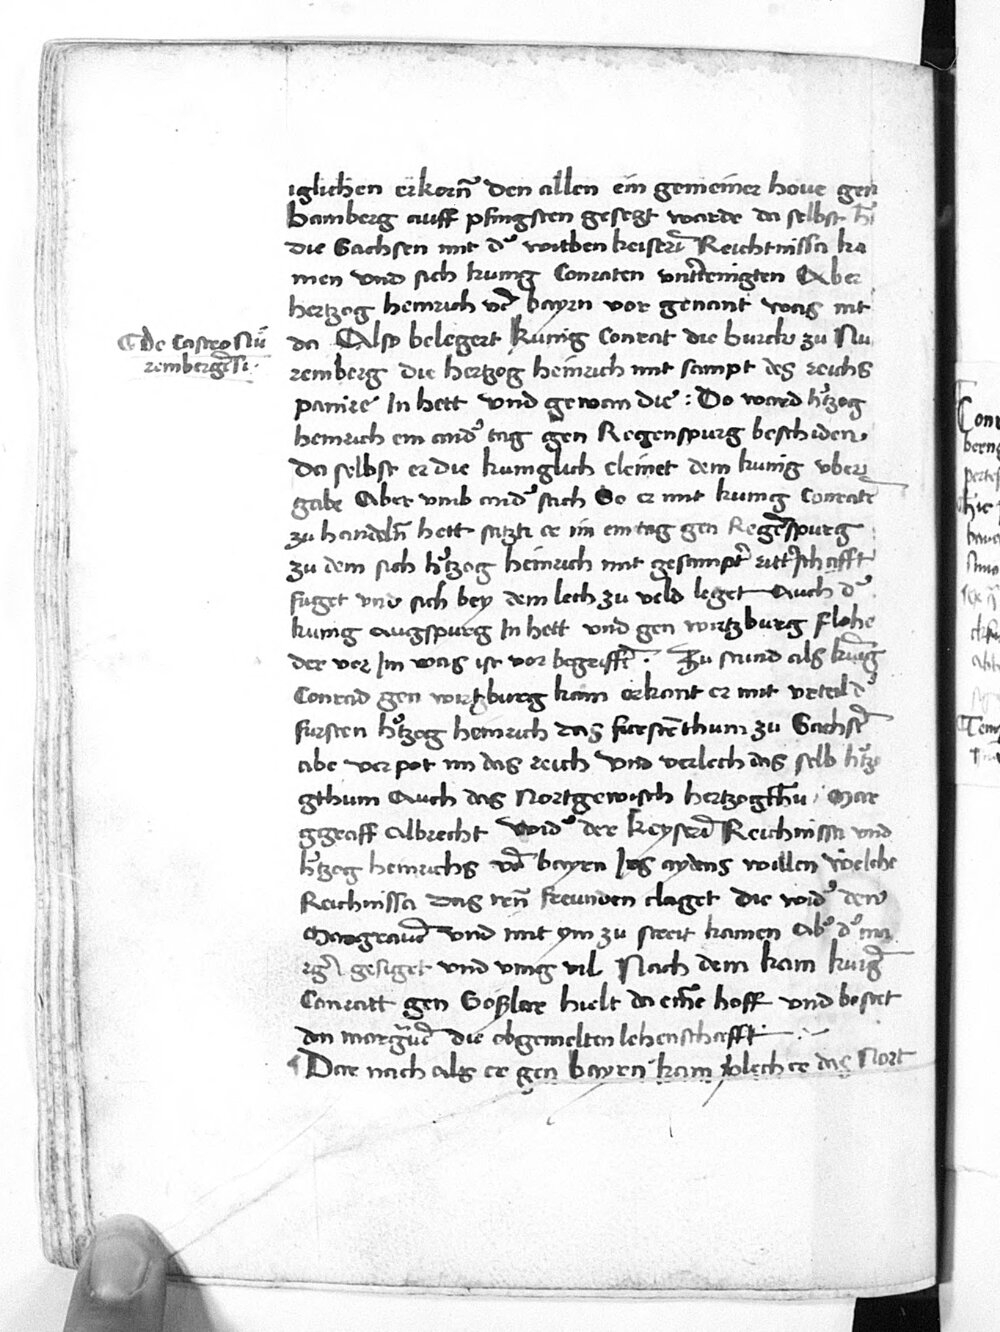 iglichen erkorn̄ den allen ein gemeiner hove gen
bamberg auff pfingsten gesetzt warde da selbst
die Sachsen mit d' witben keiserī Reichnissa ka
men vnd sich kunig Conraten vntt'tenigten Aber
hertzog heinrich vō bayrn vor genant was nit
da Also belegert kunig Conrat die burck zu Nu
remberg die hertzog heinrich mit sampt des reichs
panire In hett vnd gewan die : Do ward h'tzog
heinrich ein and' tag gen Regenspurg bescheiden,
da selbst er die kuniglich cleinet dem kunig vber
gabe Aber vmb and' sach So er mit kunig Conratē
zu handeln̄ hett satzt er im ein tag gen Regēspurg
zu dem sich h'tzog heinrich mit gesampt' ritt'schafft
fuget vnd sich bey dem lech zu veld leget Auch d'
kunig Augspurg In hett vnd gen wirtzburg flohe
der vor Im was ist vor begriffē . Zu stund als kunig
Conrad gen wirtzburg kam erkant er mit vrteil d'
fursten h'tzog heinrich das furstēthum zu Sachsē
abe verpot im das reich vnd verlech das selb h'tzo
gthum Auch das Nortgewisch hertzogthū, Mar
ggraff Albrecht wid' der keyserī Reichnissa vnd
h'tzog heinrichs vō bayrn Irs aydens willen welche
Reichnissa das iren̄ freunden claget die wid' den
Marggravē vnd mit ym zu streit kamen Ab' d' ma
rgrā gesiget vnd ving vil Nach dem kam kunig
Conratt gen Goßlar hielt da einē hoff vnd bestet
den margravē die obgemelten lehenschafft
Dar nach als er gen bayrn kam verlech er das Nort
De Castro Nū
rembergēsi.